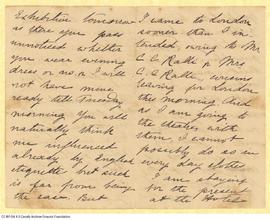 Exhibition tomorrow
as there you pass
unnoticed whether
you wear evening
dress or no. I will
not have mine
ready till Tuesday
morning. You will
naturally think
me influenced
already by English
etiquette but such
is far from being
the case. But
I came to London
sooner than I in-
tended, owing to Mr
C. C. Ralli & Mrs
C. C. Ralli, cousins
leaving for London
this morning. And
as I am going to
the theatre with
them, I cannot
possibly do so in
every day clothes.
I am staying
for the present
at the Hotel
CC BY-SA 4.0 Cavafy Archive Onassis Foundation